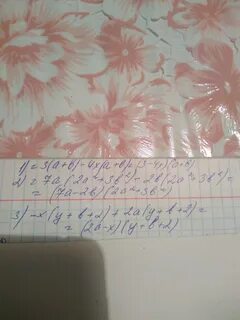 1) = 3(a+b) - 4x(a+b) = (3-4x)(a+b)
2) = 7a(2a²+3b²) - 2b(2a²+3b²) =
= (7a-2b)(2a²+3b²)
3) -x(y+b+2) + 2a(y+b+2) =
= (2a-x)(y+b+2)